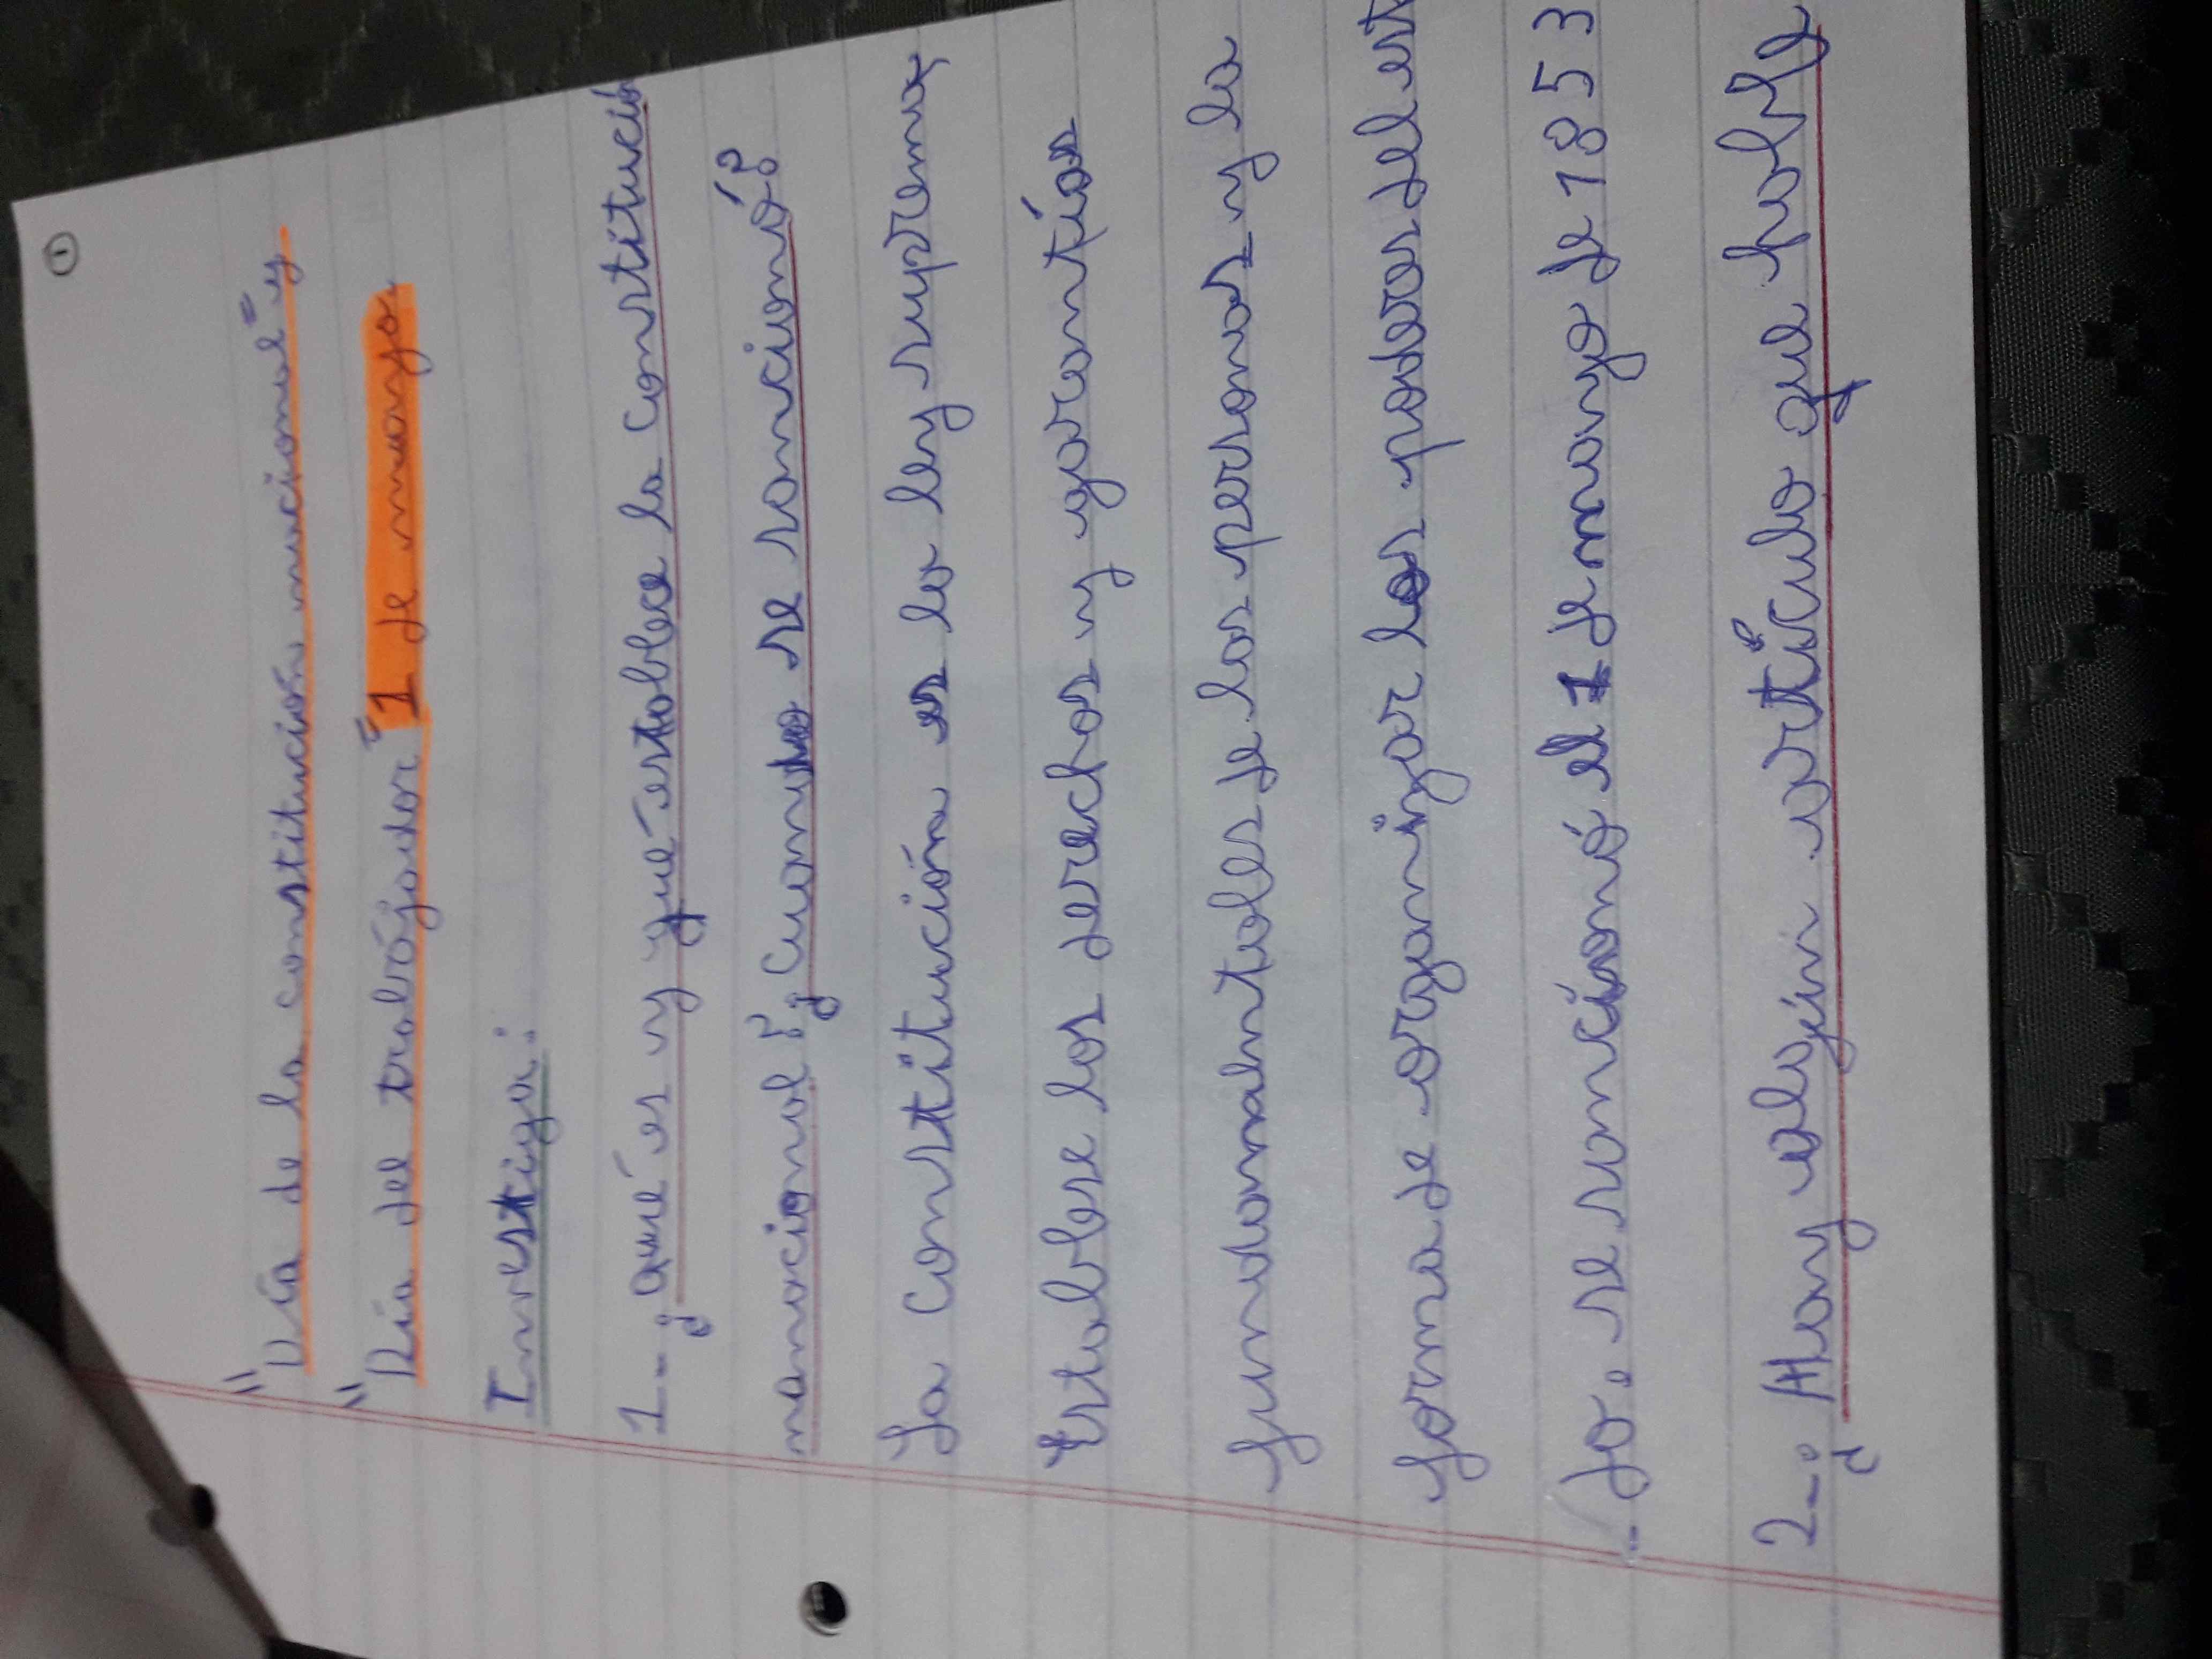 ①
"Día de la constitución nacional" y
"Día del trabajador" 1 de mayo
Investiga:
1-¿qué es y que establece la Constitució
nanacional? ¿Cuando se sancionó?
La Constitución es la ley suprema y
Establese los derechos y garantías
fundamentales de las personas y la
forma de organizar los poderes del est
do. se sancionó el 1 de mayo de 1853
2-¿Hay algún artículo que hable